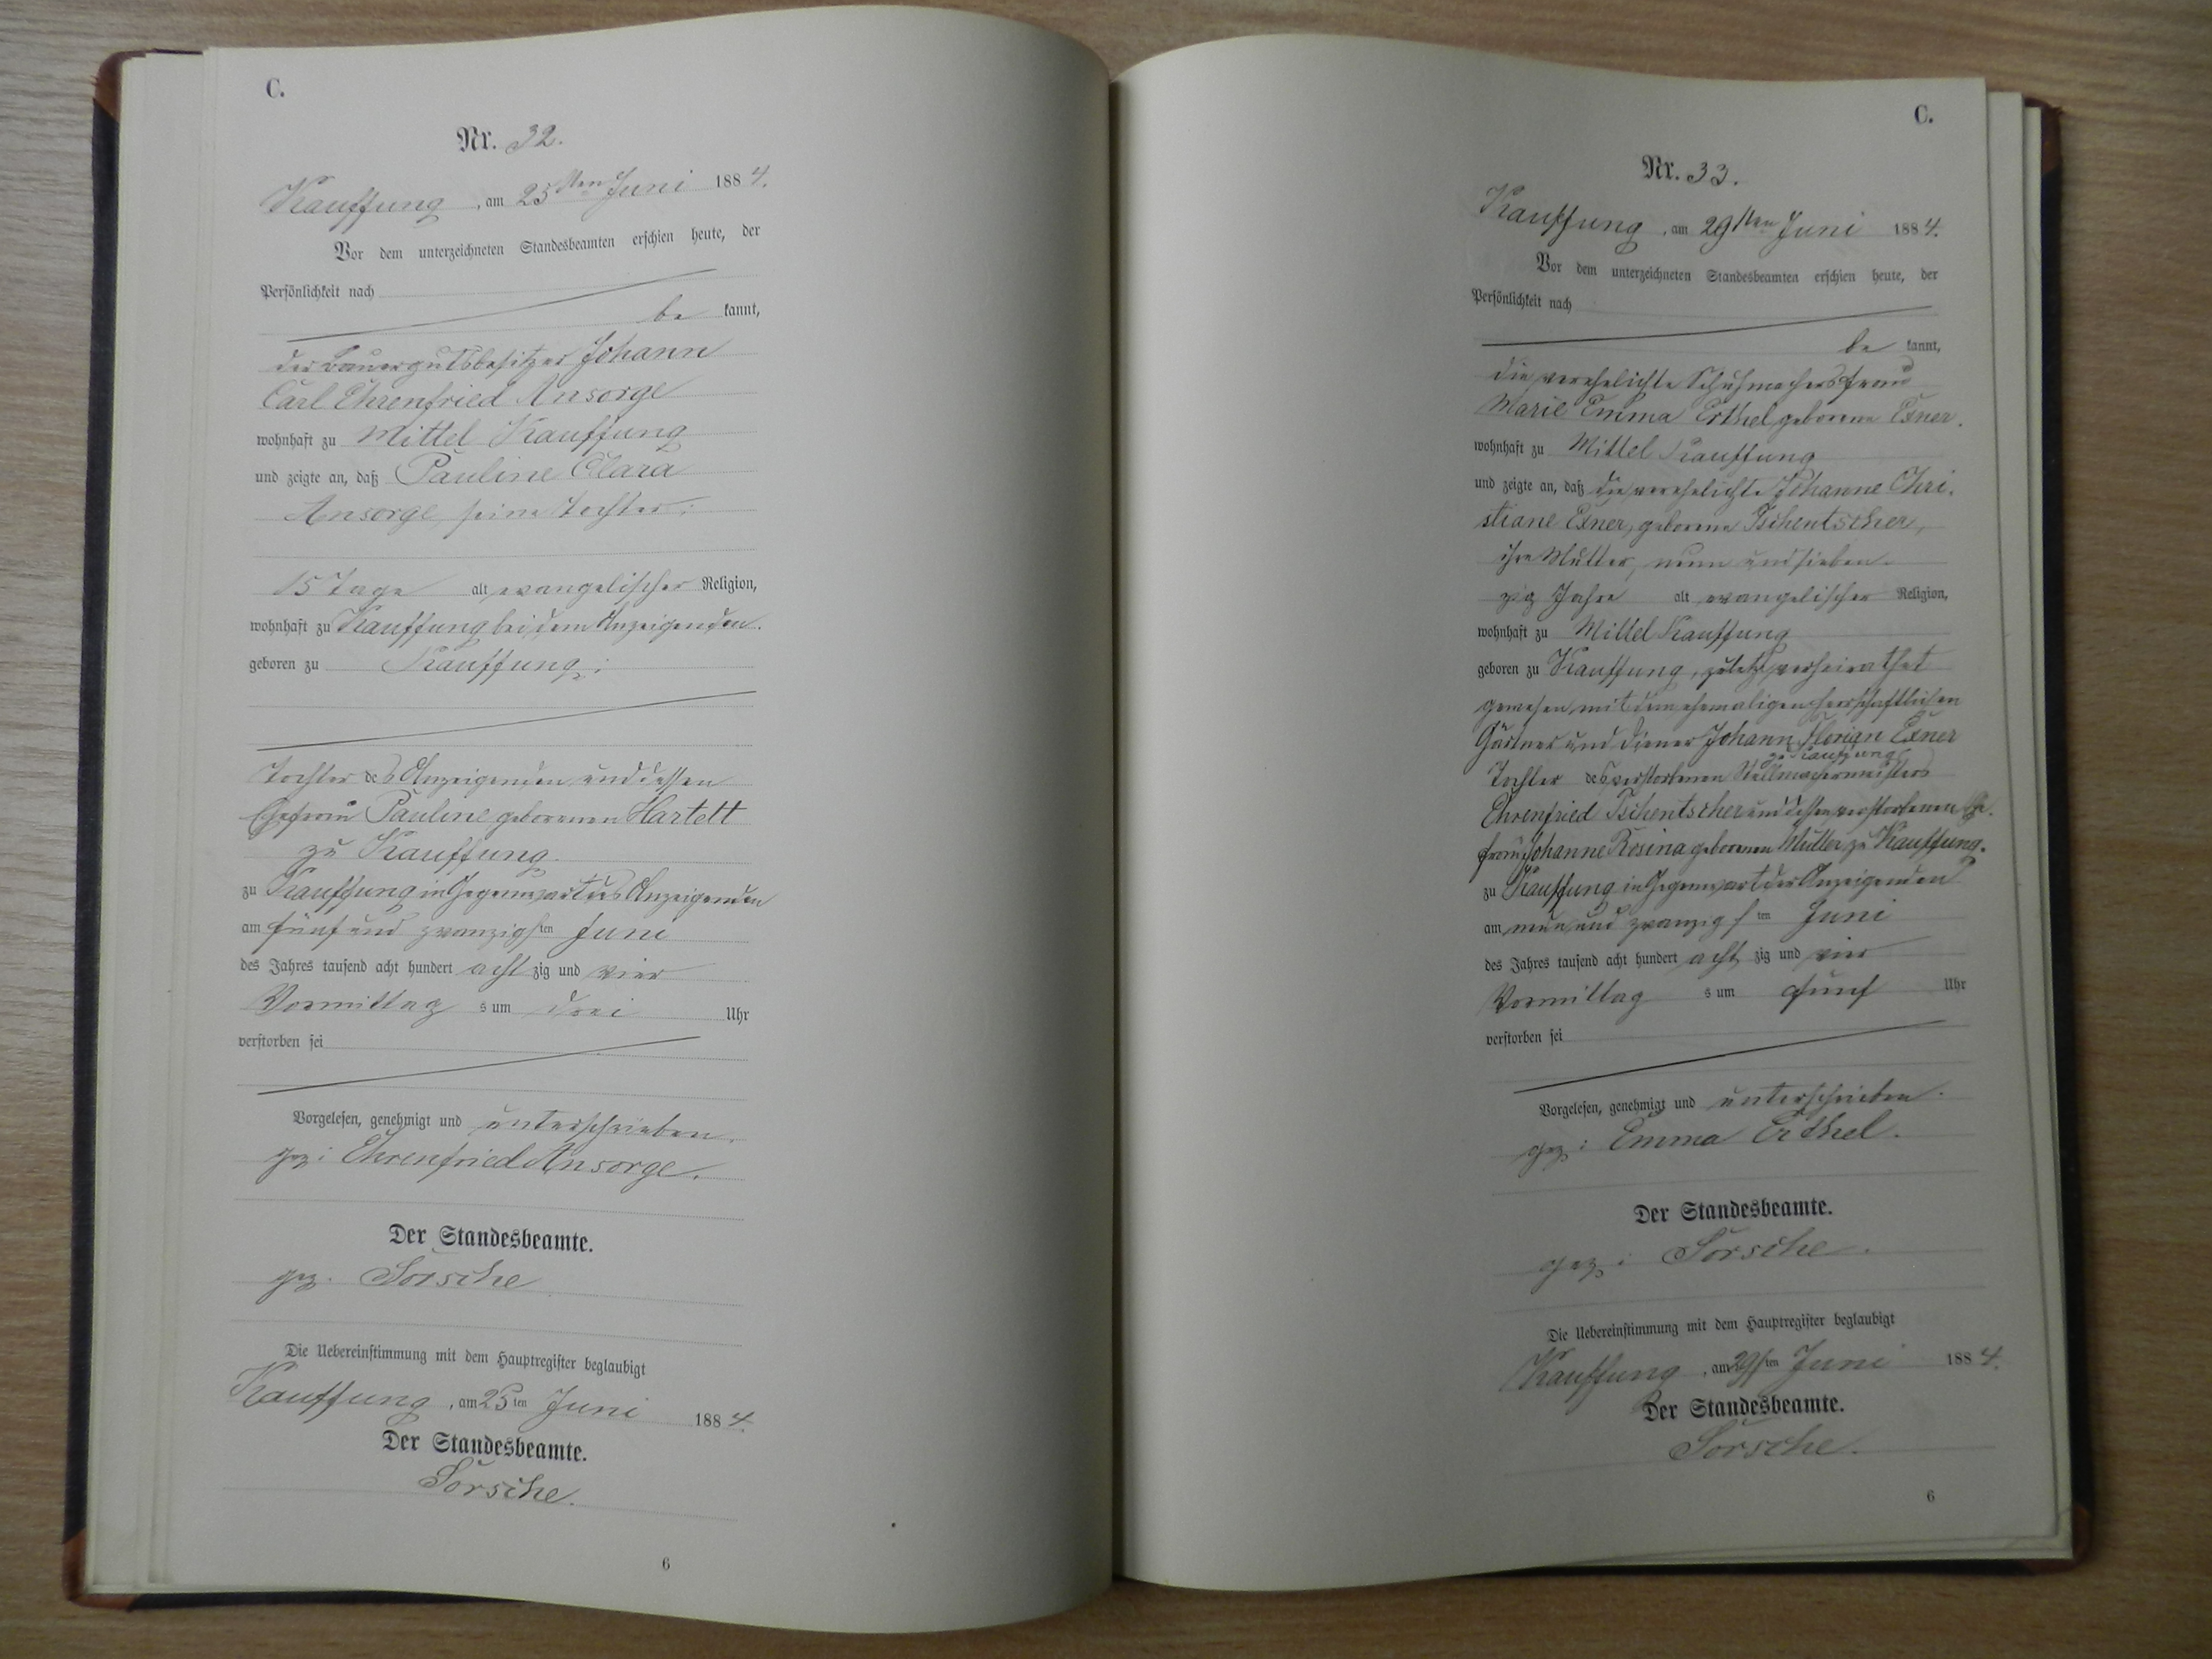 C.
Nr. 32.
Kauffung, am 25sten Juni 1884.
Vor dem unterzeichneten Standesbeamten erschien heute, der
Persönlichkeit nach
be kannt,
der Bauergutsbesitzer Johann
Carl Ehrenfried Ansorge
wohnhaft zu Mittel Kauffung
und zeigte an, daß Pauline Clara
Ansorge, seine Tochter;
15 Tage alt evangelischer Religion,
wohnhaft zu Kauffung bei dem Anzeigenden.
geboren zu Kauffung;
Tochter des Anzeigenden und dessen
Ehefrau Pauline geborenen Hartelt
zu Kauffung.
zu Kauffung in Gegenwart des Anzeigenden
am fünf und zwanzigsten Juni
des Jahres tausend acht hundert acht zig und vier
Vormittags um drei Uhr
verstorben sei
Vorgelesen, genehmigt und unterschrieben.
gez: Ehrenfried Ansorge.
Der Standesbeamte.
gez. Sorsche
Die Uebereinstimmung mit dem Hauptregister beglaubigt
Kauffung, am 25ten Juni 1884.
Der Standesbeamte.
Sorsche.
6
C.
Nr. 33.
Kauffung, am 29sten Juni 1884.
Vor dem unterzeichneten Standesbeamten erschien heute, der
Persönlichkeit nach
be kannt,
die verehelichte Schuhmachersfrau
Marie Emma Erthel geborene Exner.
wohnhaft zu Mittel Kauffung
und zeigte an, daß die verehelichte Johanne Chri-
stiane Exner, geborene Tschentscher,
ihre Mutter, neun und sieben-
zig Jahre alt evangelischer Religion,
wohnhaft zu Mittel Kauffung
geboren zu Kauffung, zuletzt verheirathet
gewesen mit dem ehemaligen herrschaftlichen
Gärtner und Diener Johann Florian Exner
zu Kauffung
Tochter des verstorbenen Stellmachermeisters
Ehrenfried Tschentscher und dessen verstorbenen Ehe-
frau Johanne Rosina geborenen Müller zu Kauffung.
zu Kauffung in Gegenwart der Anzeigenden
am neun und zwanzigsten Juni
des Jahres tausend acht hundert acht zig und vier
Vormittags um fünf Uhr
verstorben sei
Vorgelesen, genehmigt und unterschrieben.
gez: Emma Erthel.
Der Standesbeamte.
gez: Sorsche.
Die Uebereinstimmung mit dem Hauptregister beglaubigt
Kauffung, am 29sten Juni 1884.
Der Standesbeamte.
Sorsche.
6